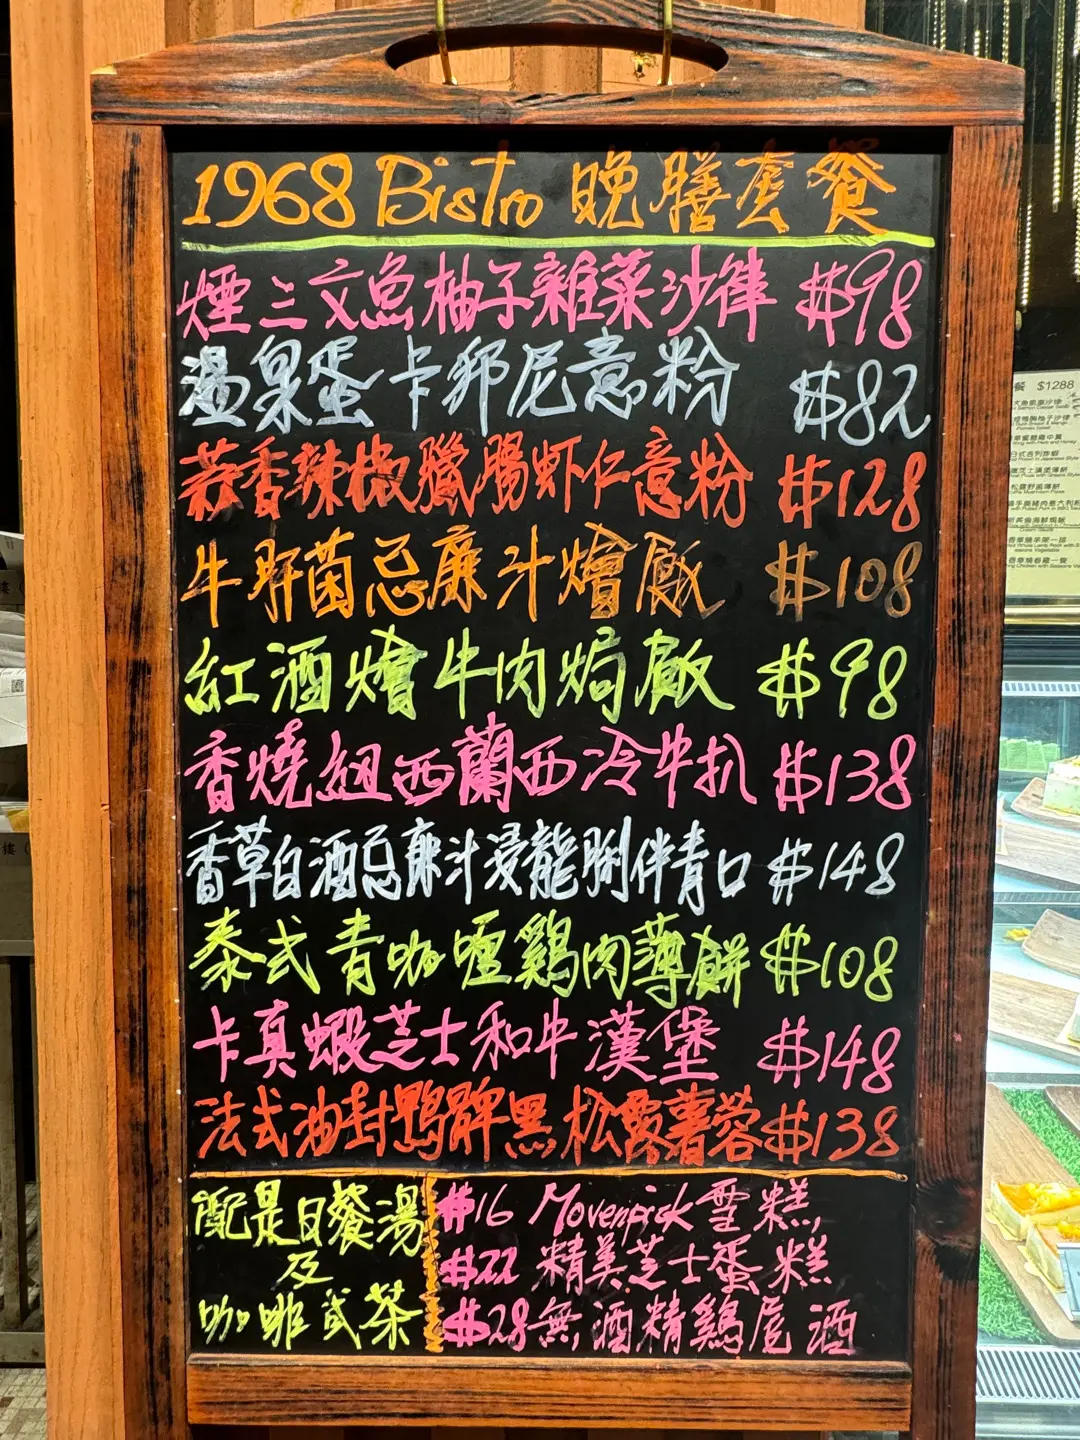 1968 Bistro 晚膳套餐
煙三文魚柚子雜菜沙律 $98
溫泉蛋卡邦尼意粉 $82
蒜香辣椒臘腸虾仁意粉 $128
牛肝菌忌廉汁燴飯 $108
紅酒燴牛肉焗飯 $98
香燒紐西蘭西冷牛扒 $138
香草白酒忌廉汁浸龍脷伴青口 $148
泰式青咖喱鷄肉薄餅 $108
卡真蝦芝士和牛漢堡 $148
法式油封鴨髀黑松露薯蓉 $138
配是日餐湯
及
咖啡或茶
$16 Movenpick 雪糕,
$22 精美芝士蛋糕
$28 無酒精鷄尾酒
餐 $1288